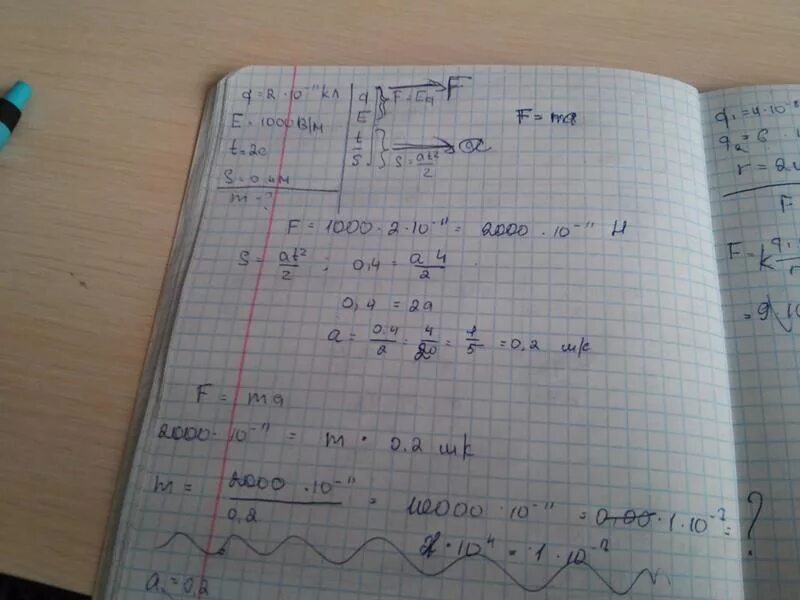 q = 2 · 10⁻¹¹ кл
E = 1000 В/м
t = 2с
S = 0,4м
m - ?
q
E } F = Eq → F
t
S } S = at²/2 → a
F = ma
F = 1000 · 2 · 10⁻¹¹ = 2000 · 10⁻¹¹ Н
S = at²/2 ; 0,4 = a 4/2
0,4 = 2a
a = 0.4/2 = 4/20 = 1/5 = 0,2 м/с
F = ma
2000 · 10⁻¹¹ = m · 0.2 м/с
m = 2000 · 10⁻¹¹/0,2 = 10000 · 10⁻¹¹ = 1 · 10⁻⁷ = ?
· 10⁴ = 1 · 10⁻⁷
a = 0,2
q₁ = 4 · 10
q₂ = 6 ·
r = 2
F
F = k q₁/r
= 9 10